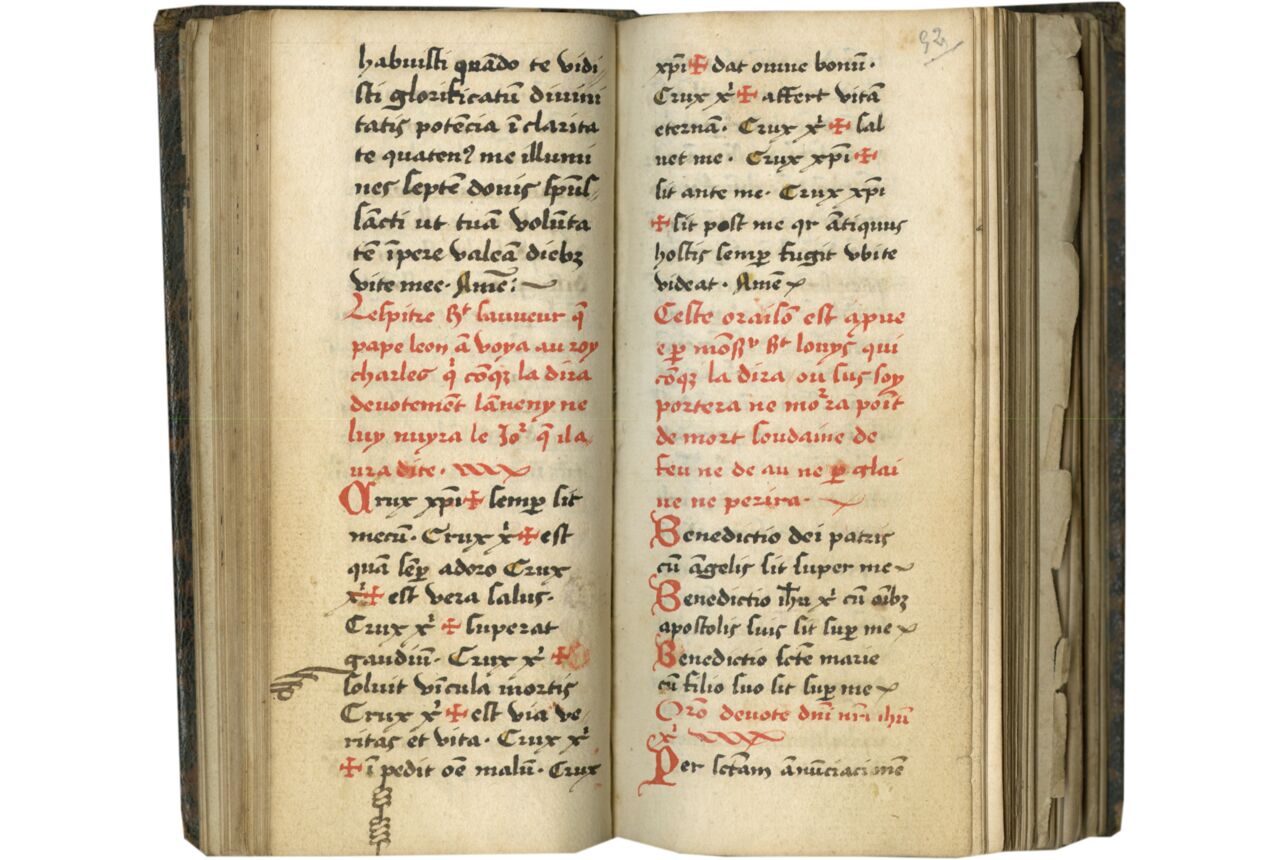 habuisti quādo te vidi
sti glorificatū divini
tatis potēcia ī clarita
te quatenꝰ me illumi
nes septē donis spūs
sācti ut tuā volūta
tē īpere valeā diebꝫ
vite mee. Amē.
Lespitre du sauveur q̄
pape leon ā voya au roy
charles q̄ cōqꝫ la dira
devotemēt lāneny ne
luy nuyra le Ior q̄ il a
ura dite.
Crux xp̄i ✠ semꝑ sit
mecū. Crux x̄ ✠ est
quā sēꝑ adoro Crux
x̄ ✠ est vera salus.
Crux x̄ ✠ superat
gaudiū. Crux x̄ ✠
soluit vīcula mortis
Crux x̄ ✠ est via ve
ritas et vita. Crux x̄
✠ ī pedit oē malū. Crux
92
xp̄i ✠ dat omne bonū.
Crux x̄ ✠ affert vitā
eternā. Crux x̄ ✠ sal
vet me. Crux xp̄i ✠
sit ante me. Crux xp̄i
✠ sit post me qr ātiquus
hostis semꝑ fugit vbi te
videat. Amē
Ceste oraisō est apvue
e ꝑ mōsr St louys qui
cōqꝫ la dira ou sus soy
portera ne morra poīt
de mort soudaine de
feu ne de au ne ꝑ glai
ve ne perira.
Benedictio dei patris
cū āgelis sit super me
Benedictio ih̄u x̄ cū oībꝫ
apostolis suis sit suꝑ me
Benedictio scte marie
cū filio suo sit suꝑ me
Orō devote dn̄i nr̄i ih̄u
x̄
Per sctam ānūciacionē